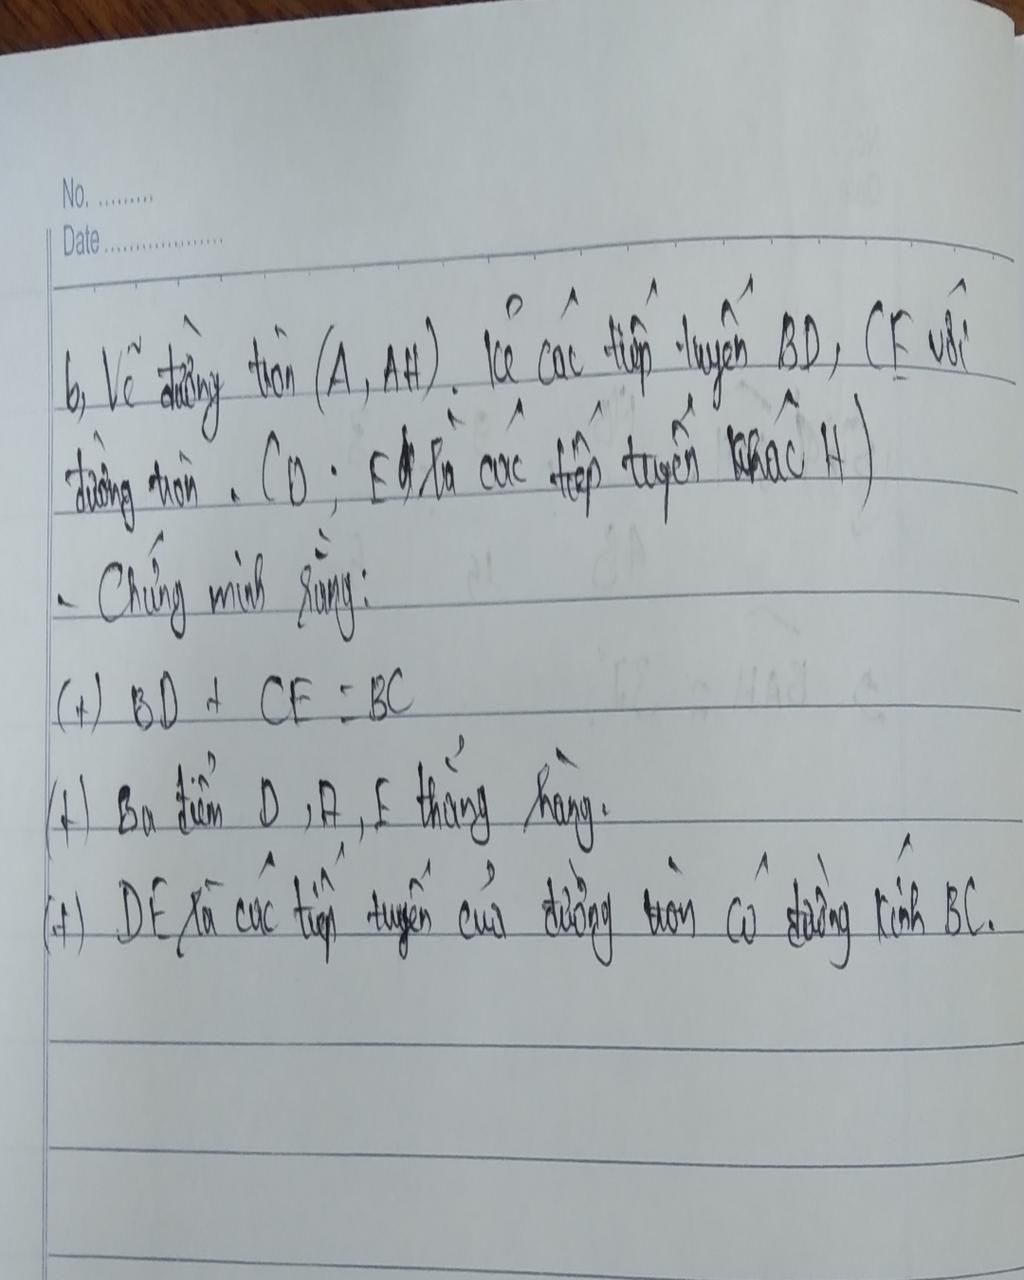 No. .........
Date ...................
b, Vẽ đường tròn (A, AH). Kẻ các tiếp tuyến BD, CE với
đường tròn. (D; E là các tiếp tuyến khác H)
- Chứng minh rằng:
(+) BD + CE = BC
(+) Ba điểm D, A, E thẳng hàng.
(+) DE là các tiếp tuyến của đường tròn có đường kính BC.